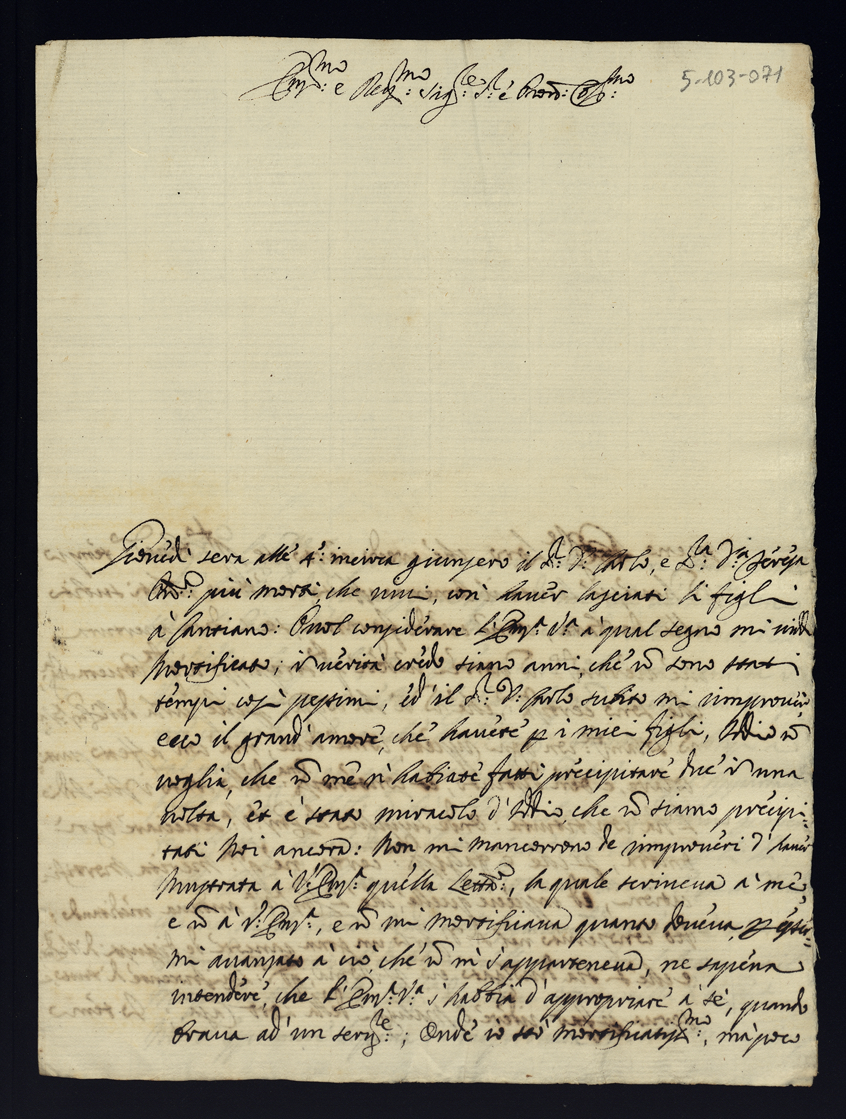 Em.mo e Rev.mo Sig.re S.r e Pron: Col.mo
5-103-071
Giovedi sera alle 4: meiza giunsero il S.r D. Carlo, e S.ra D.na Teresa
più morti, che vivi, con haver lasciati li figli
à Canziano: Puol considerare l'Em.a V.a à qual segno mi vidde
Mortificato; in verità credo siano anni, che nō sono stati
tempi così pessimi, ed il S.r D. Carlo subito mi improverò
ecco il grand'amore, che havete p i miei figli, Iddio nō
voglia, che nō me n'habbiate fatti precipitare due in una
volta, et è stato miracolo d'Iddio, che nō siamo precipi-
tati Noi ancora: Non mi mancorrono de improveri d'haver
Mostrata à V. Em.a quella Lett.a, la quale scriveva à me,
e nō à V. Em.a, e nō mi mortificava quanto doveva, p esser-
mi avanzato à ciò, che nō m s'apparteneva, ne sapeva
intendere, che l'Em.a V.a s'habbia d'appropriare à sè, quando
trava ad' un serv.re; Onde io stò mortificatiss.mo, mà poco